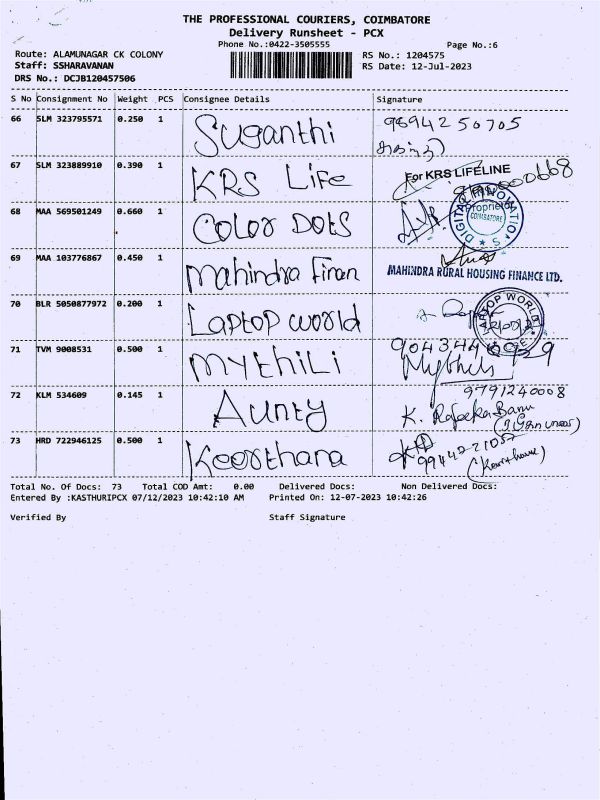 THE PROFESSIONAL COURIERS, COIMBATORE
Delivery Runsheet - PCX
Phone No.:0422-3505555 Page No.:6
Route: ALAMUNAGAR CK COLONY RS No.: 1204575
Staff: SSHARAVANAN RS Date: 12-Jul-2023
DRS No.: DCJB120457506
S No Consignment No Weight PCS Consignee Details Signature
66 SLM 323795571 0.250 1 Suganthi 9894250705
67 SLM 323889910 0.390 1 KRS Life For KRS LIFELINE
68 MAA 569501249 0.660 1 COLOR DOTS Proprietor
COIMBATORE
69 MAA 103776867 0.450 1 Mahindra Finan MAHINDRA RURAL HOUSING FINANCE LTD.
70 BLR 5050877972 0.200 1 Laptop world LAPTOP WORLD
71 TVM 9008531 0.500 1 MYTHILI Mythili
72 KLM 534609 0.145 1 Aunty 9791240008
K. Rafeeka Banu
73 HRD 722946125 0.500 1 Keerthana
Total No. Of Docs: 73 Total COD Amt: 0.00 Delivered Docs: Non Delivered Docs:
Entered By :KASTHURIPCX 07/12/2023 10:42:10 AM Printed On: 12-07-2023 10:42:26
Verified By Staff Signature